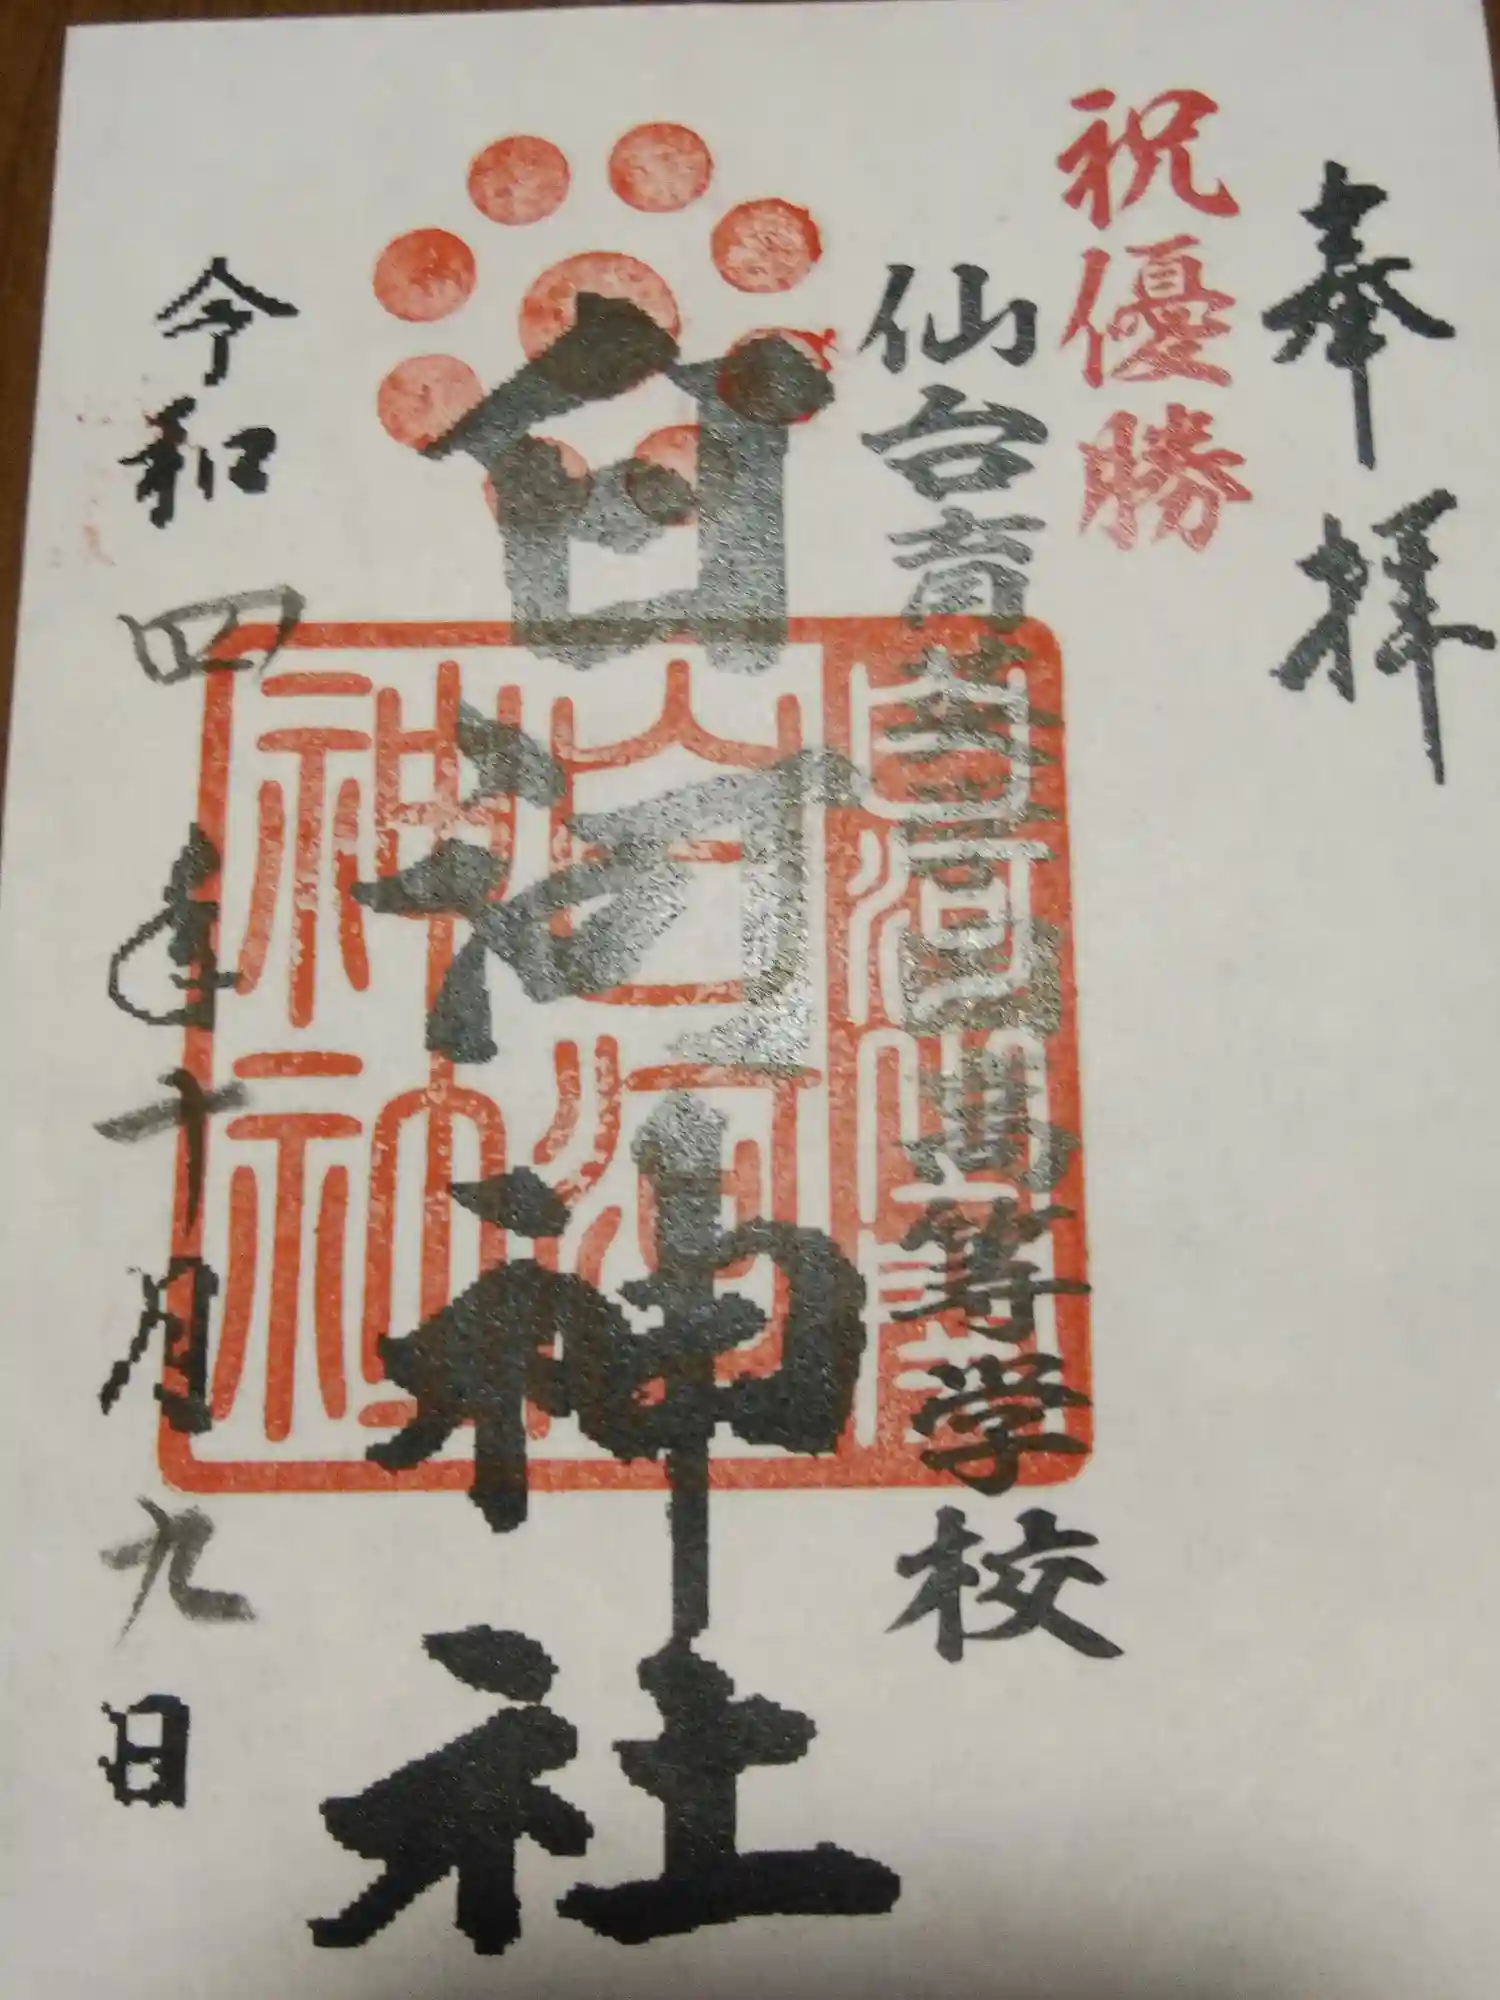 奉拝
祝優勝
仙台育英学園高等学校
白河神社
白河神社
令和四年十月九日